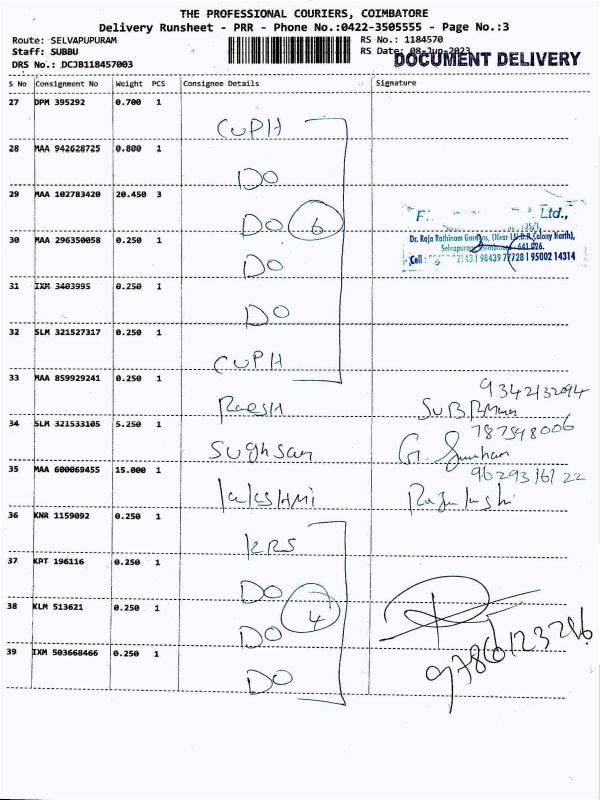 THE PROFESSIONAL COURIERS, COIMBATORE
Delivery Runsheet - PRR - Phone No.:0422-3505555 - Page No.:3
Route: SELVAPUPURAM RS No.: 1184570
Staff: SUBBU RS Date: 08-Jun-2023
DOCUMENT DELIVERY
DRS No.: DCJB118457003
S No Consignment No Weight PCS Consignee Details Signature
27 DPM 395292 0.700 1
CUPH
28 MAA 942628725 0.800 1
DO
29 MAA 102783420 20.450 3
DO 6
Ltd.,
Dr. Raja Rathinam Gardens, (Near I.U.D.R.Colony North),
30 MAA 296350058 0.250 1
Selvapuram, 641 026.
DO
Cell : 98439 77728 | 95002 14314
31 IXM 3403995 0.250 1
DO
32 SLM 321527317 0.250 1
CUPH
33 MAA 859929241 0.250 1
9342132094
34 SLM 321533105 5.250 1
787598006
Sughsan
35 MAA 600069455 15.000 1
9629316122
lakshmi
36 KNR 1159092 0.250 1
KRS
37 KPT 196116 0.250 1
DO
38 KLM 513621 0.250 1
4
DO
39 IXM 503668466 0.250 1
9786123286
DO